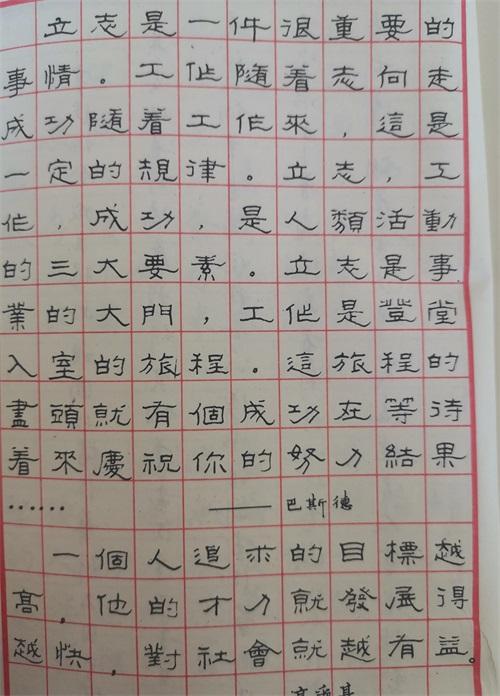 立志是一件很重要的
事情。工作隨着志向走
成功隨着工作來，這是
一定的規律。立志，工
作，成功，是人類活動
的三大要素。立志是事
業的大門，工作是登堂
入室的旅程。這旅程的
盡頭就有個成功在等待
着來慶祝你的努力結果
……——巴斯德
一個人追求的目標越
高，他的才力就發展得
越快，對社會就越有益。